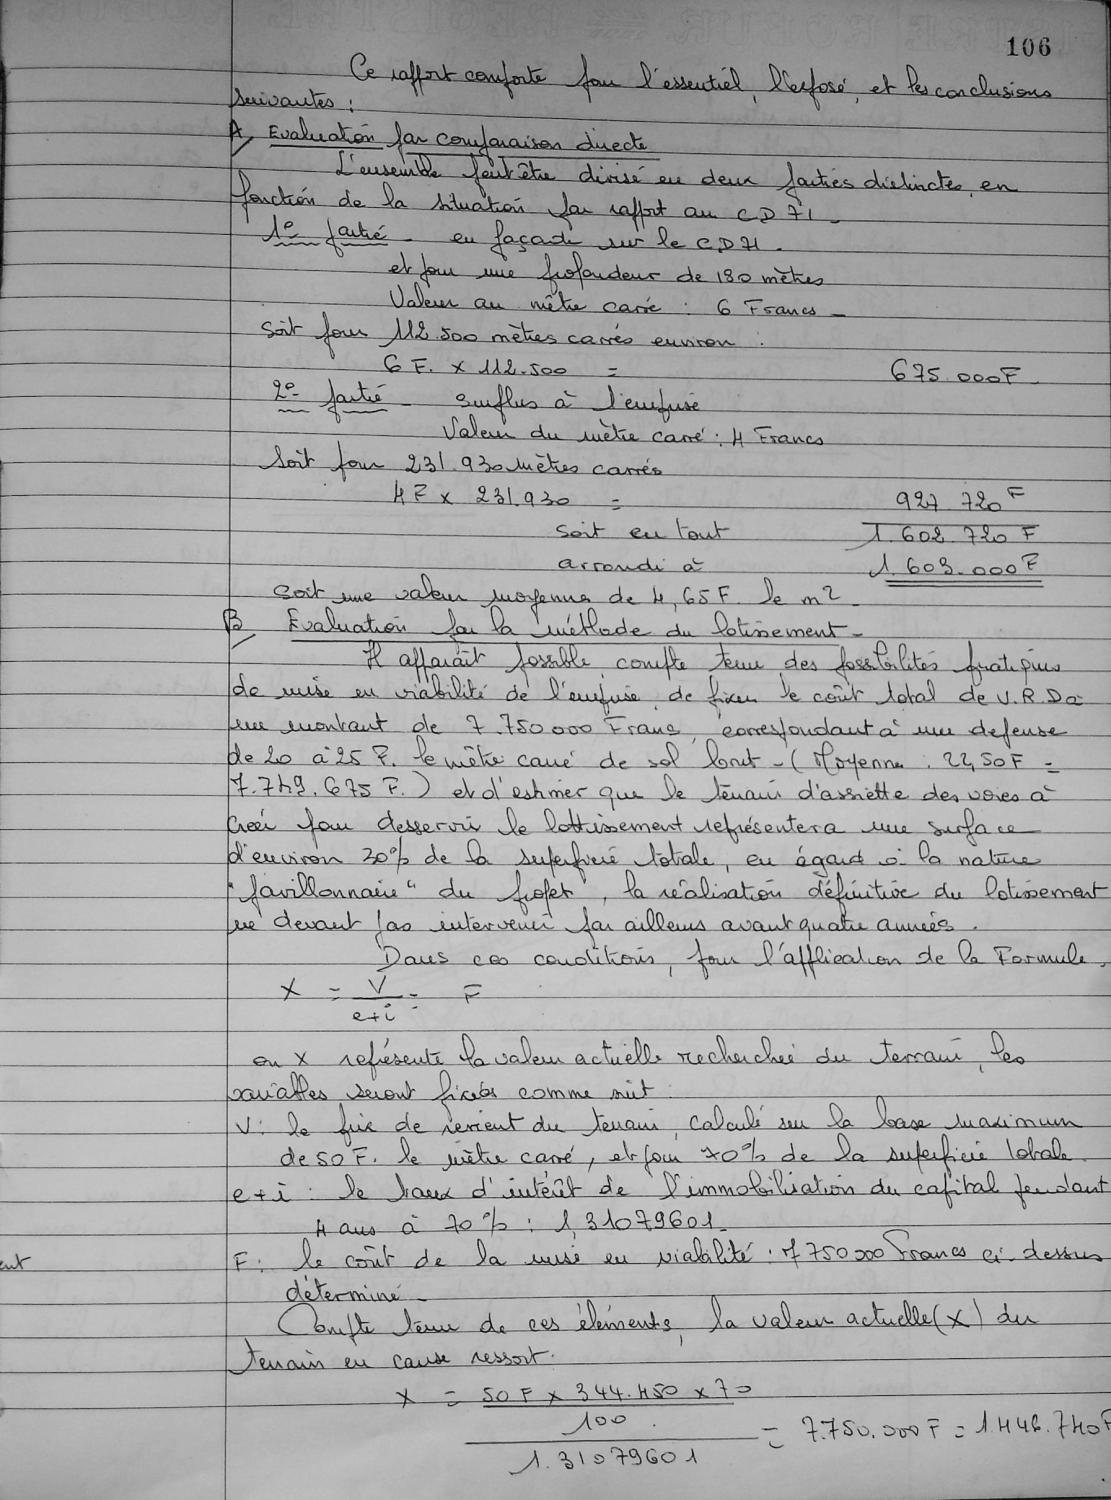 106
Ce rapport comporte pour l'essentiel, l'exposé, et les conclusions
suivantes :
A/ Evaluation par comparaison directe
L'ensemble peut être divisé en deux parties distinctes, en
fonction de la situation par rapport au CD 71 -
1º partie - en façade sur le CD 71.
et pour une profondeur de 180 mètres
Valeur au mètre carré : 6 Francs -
Soit pour 112.500 mètres carrés environ .
6 F. x 112.500 = 675.000F -
2º partie - surplus à l'emprise
Valeur du mètre carré : 4 Francs
Soit pour 231.930 mètres carrés
4 F x 231.930 = 927 720 F
soit en tout 1.602.720 F
arrondi à 1.603.000 F
soit une valeur moyenne de 4,65 F. le m2 -
B/ Evaluation par la méthode du lotissement -
Il apparaît possible, compte tenu des possibilités pratiques
de mise en viabilité de l'emprise, de fixer le coût total de V.R.D à
un montant de 7.750 000 Francs, correspondant à une dépense
de 20 à 25 F. le mètre carré de sol brut - ( Moyenne : 22,50 F =
7.749.675 F. ) et d'estimer que le terrain d'assiette des voies à
créer pour desservir le lottissement représentera une surface
d'environ 30% de la superficie totale, eu égard à la nature
"pavillonnaire" du projet, la réalisation définitive du lotissement
ne devant pas intervenir par ailleurs avant quatre années .
Dans ces conditions, pour l'application de la Formule,
X = V = F
e+i
ou X représente la valeur actuelle recherchée du terrain, les
variables seront fixées comme suit :
V : le prix de revient du terrain, calculé sur la base maximum
de 50 F. le mètre carré, et pour 70% de la superficie totale.
e+i : le taux d'intérêt de l'immobilisation du capital pendant
4 ans à 70% : 1,31079601 -
ent
F : le coût de la mise en viabilité : 7 750 000 Francs ci-dessus
déterminé -
Compte tenu de ces éléments, la valeur actuelle (X) du
terrain en cause ressort :
X = 50 F x 344.450 x 70
100
= 7.750.000 F = 1.446.740 F
1.31079601